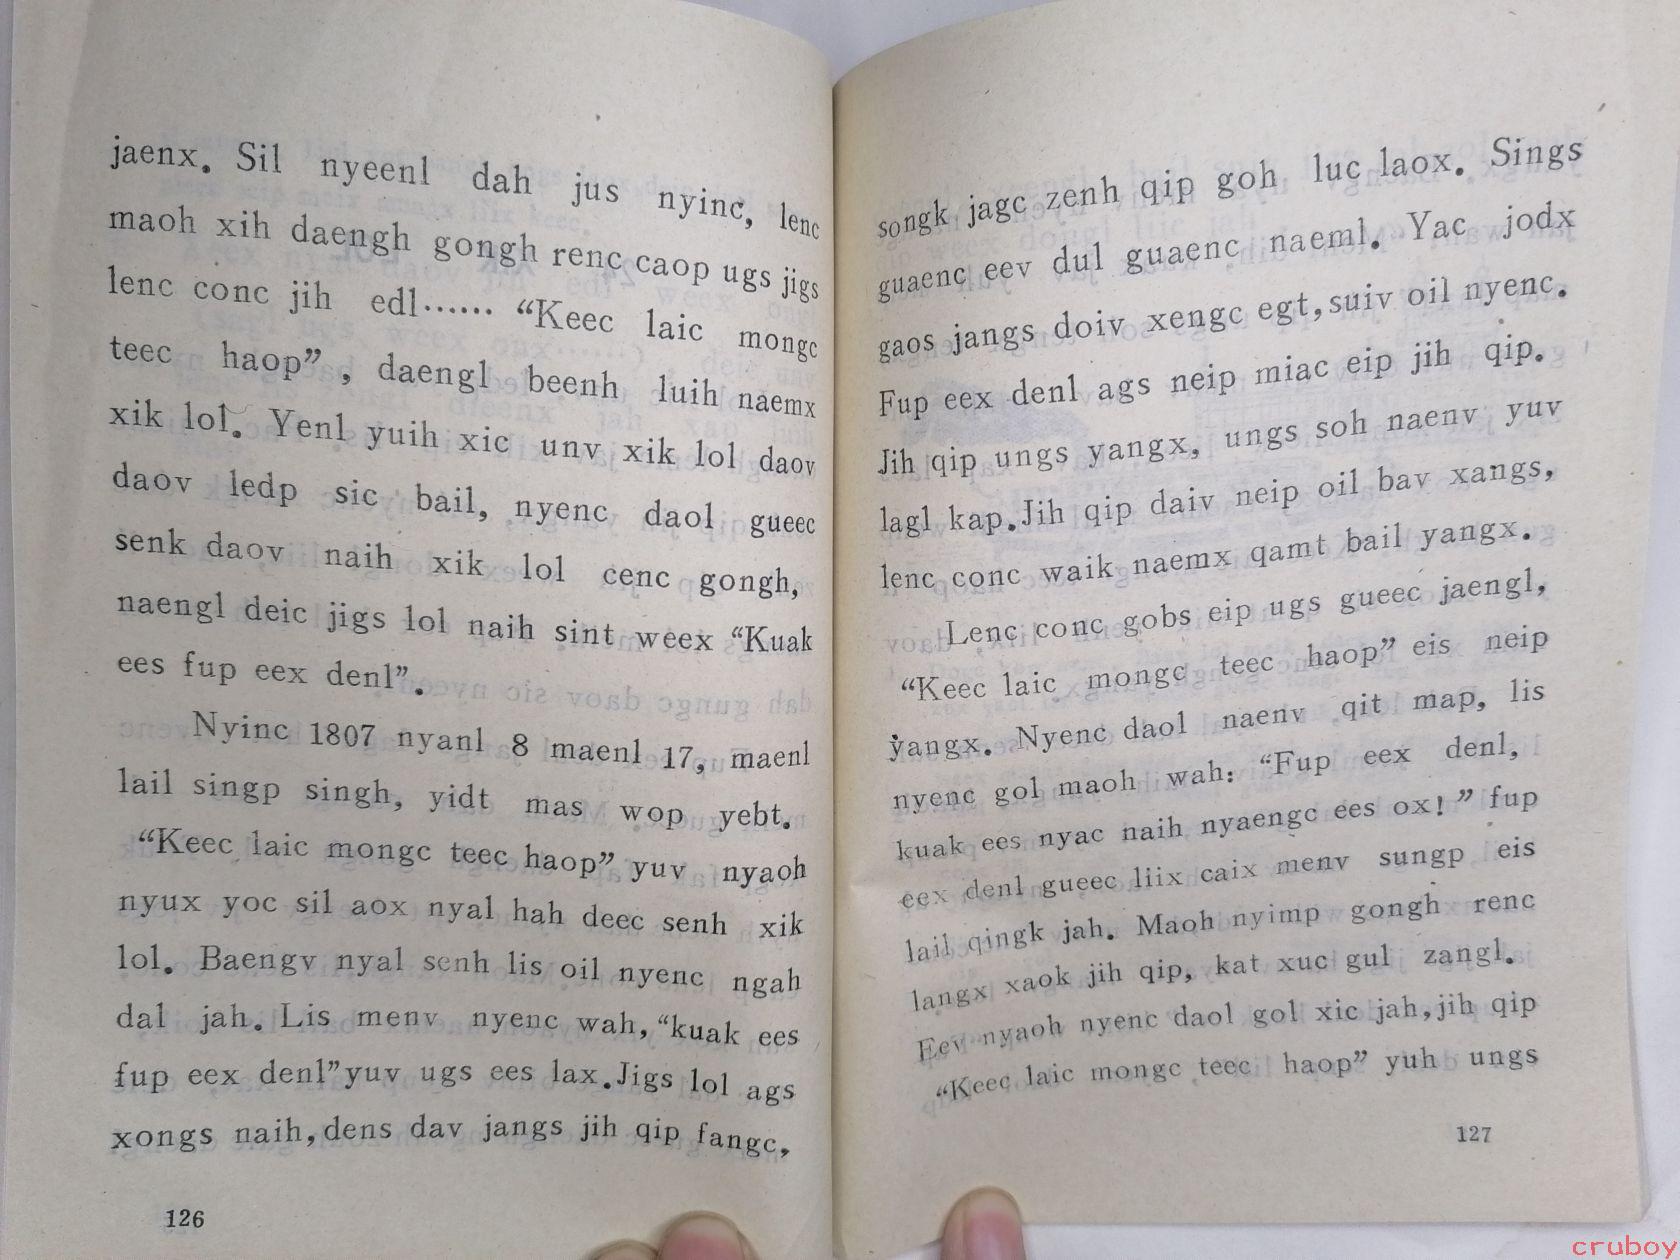 jaenx. Sil nyeenl dah jus nyinc, lenc
maoh xih daengh gongh renc caop ugs jigs
lenc conc jih edl…… “Keec laic mongc
teec haop”, daengl beenh luih naemx
xik lol. Yenl yuih xic unv xik lol daov
daov ledp sic bail, nyenc daol gueec
senk daov naih xik lol cenc gongh,
naengl deic jigs lol naih sint weex “Kuak
ees fup eex denl”.
Nyinc 1807 nyanl 8 maenl 17, maenl
lail singp singh, yidt mas wop yebt.
“Keec laic mongc teec haop” yuv nyaoh
nyux yoc sil aox nyal hah deec senh xik
lol. Baengv nyal senh lis oil nyenc ngah
dal jah. Lis menv nyenc wah, “kuak ees
fup eex denl” yuv ugs ees lax. Jigs lol ags
xongs naih, dens dav jangs jih qip fangc,
126
songk jagc zenh qip goh luc laox. Sings
guaenc eev dul guaenc naeml. Yac jodx
gaos jangs doiv xengc egt, suiv oil nyenc.
Fup eex denl ags neip miac eip jih qip.
Jih qip ungs yangx, ungs soh naenv yuv
lagl kap. Jih qip daiv neip oil bav xangs,
lenc conc waik naemx qamt bail yangx.
Lenc conc gobs eip ugs gueec jaengl,
“Keec laic mongc teec haop” eis neip
yangx. Nyenc daol naenv qit map, lis
nyenc gol maoh wah: “Fup eex denl,
kuak ees nyac naih nyaengc ees ox!” fup
eex denl gueec liix caix menv sungp eis
lail qingk jah. Maoh nyimp gongh renc
langx xaok jih qip, kat xuc gul zangl.
Eev nyaoh nyenc daol gol xic jah, jih qip
“Keec laic mongc teec haop” yuh ungs
127
cruboy